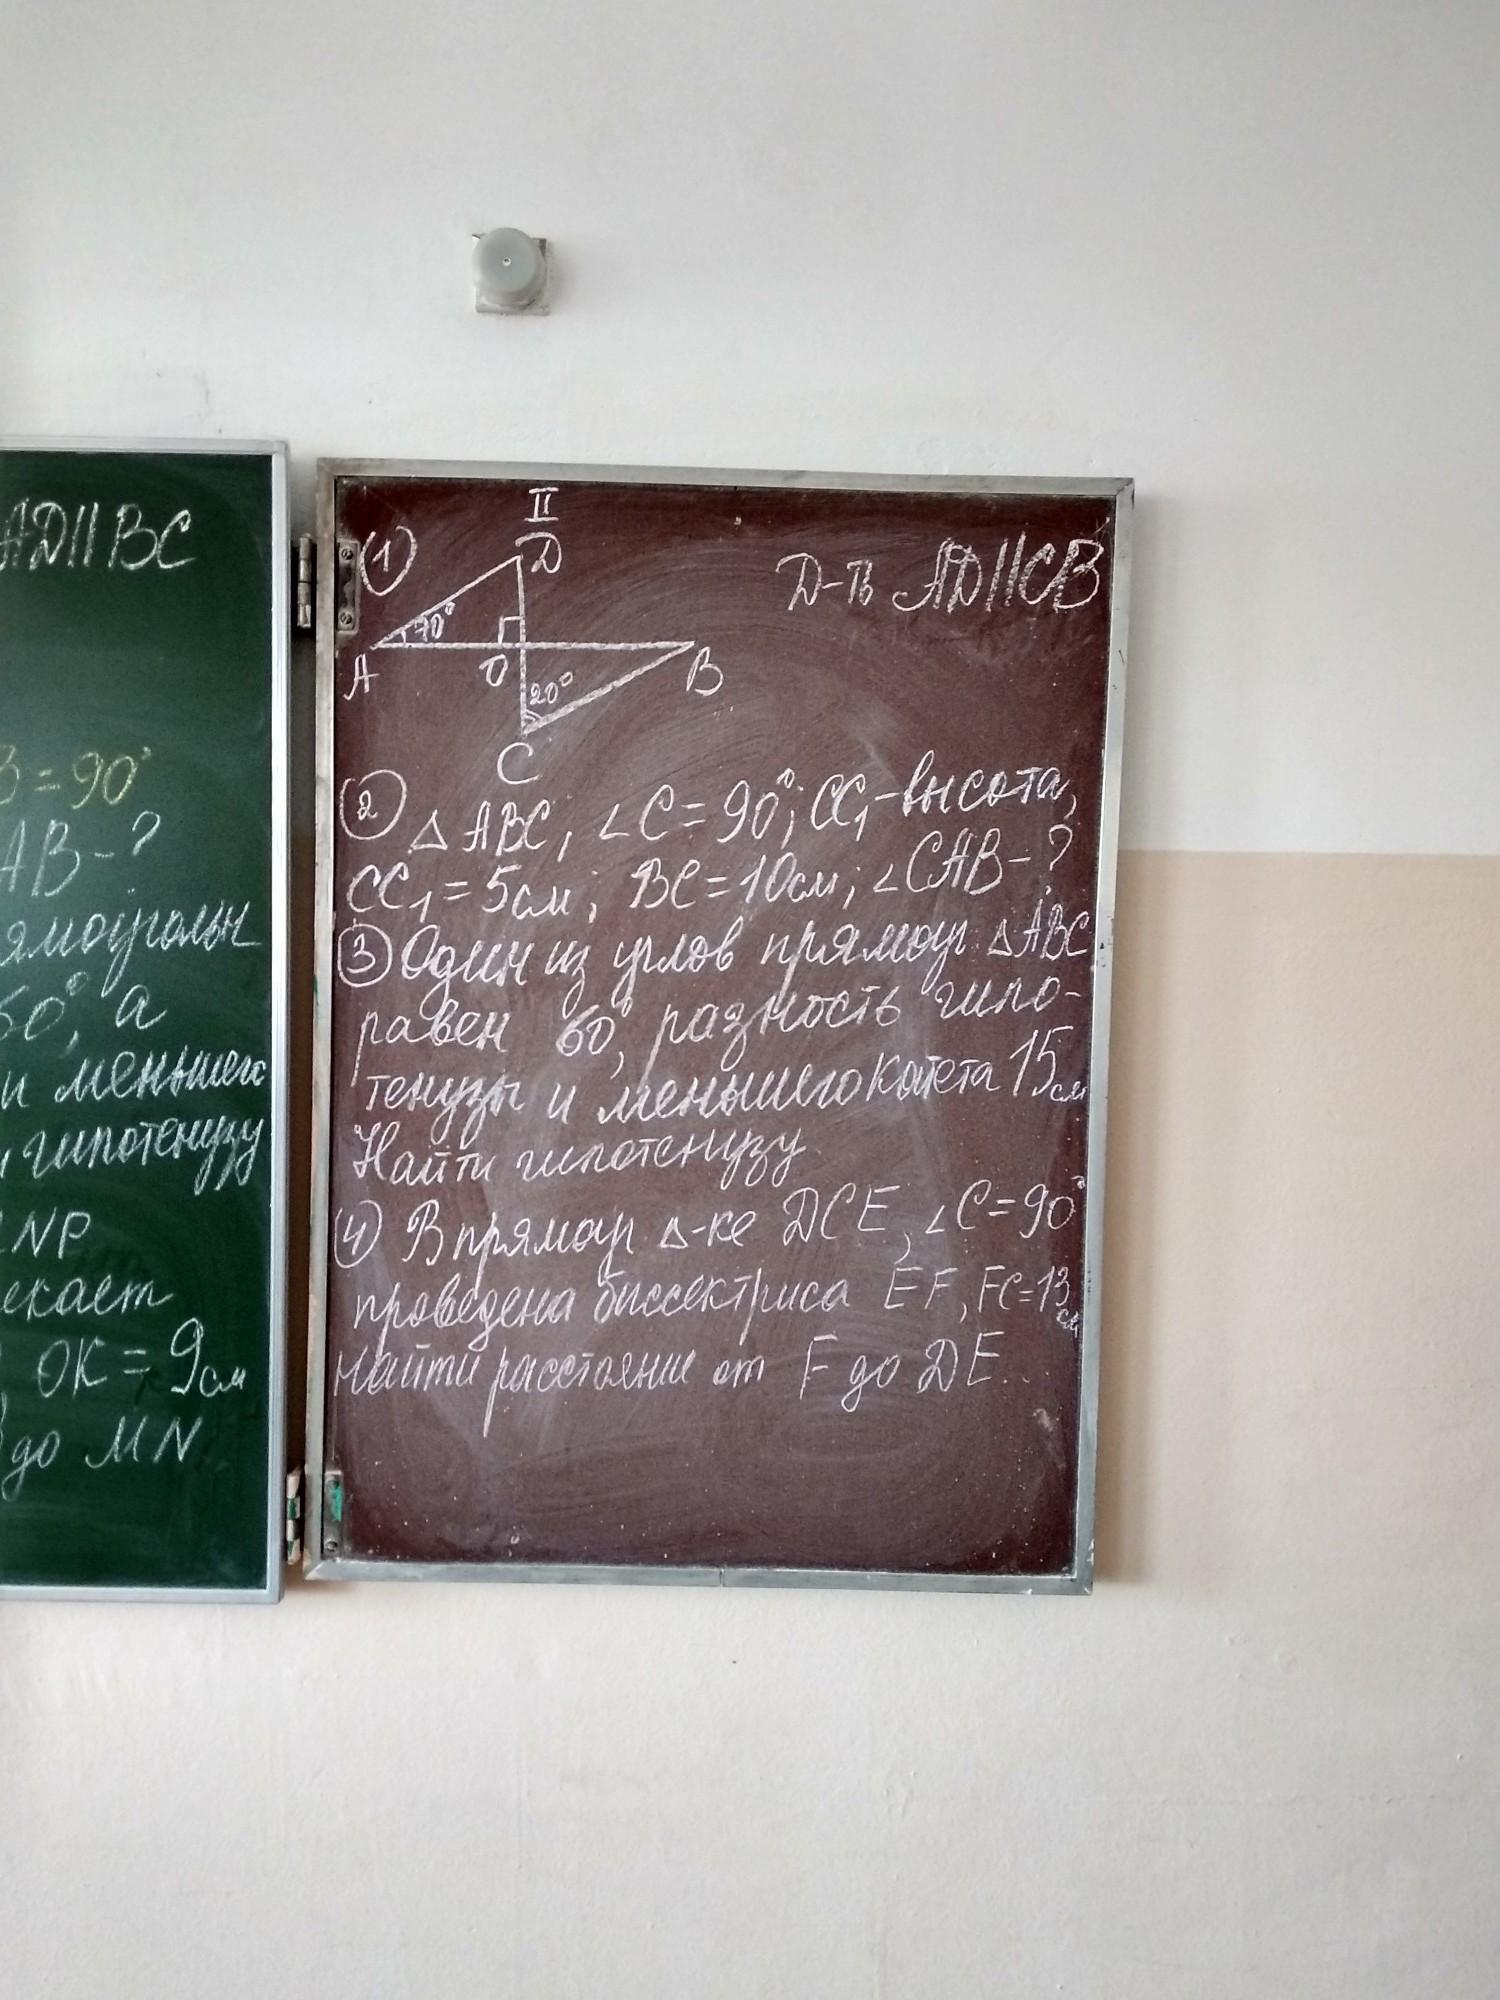 AD||BC
B=90°
AB-?
ямоугольн
60°, а
и меньшего
и гипотенузу
NP
екает
, OK=9см
до MN
II
① D
Д-ть AD||CB
70°
A O B
20°
C
② △ABC, ∠C=90°; CC₁-высота,
CC₁=5см; BC=10см; ∠CAB-?
③ Один из углов прямоуг. △ABC
равен 60°, разность гипо-
тенузы и меньшего катета 15см
Найти гипотенузу
④ В прямоуг △-ке DCE, ∠C=90°
проведена биссектриса EF, FC=13
см
найти расстояние от F до DE.